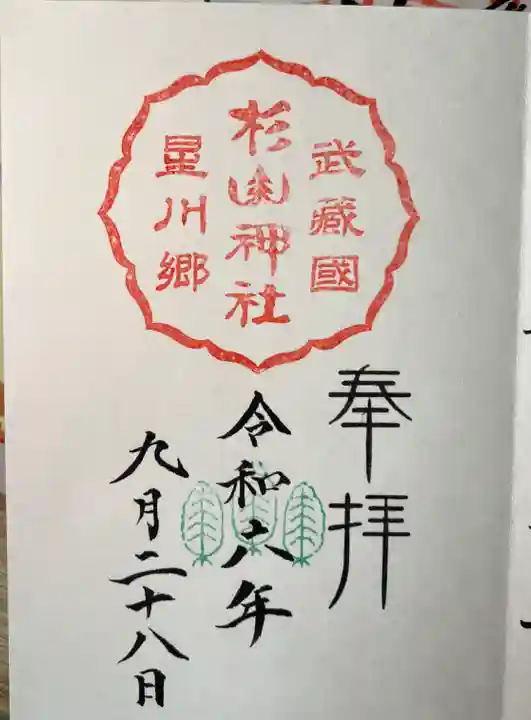 武藏國
杉山神社
星川郷
奉拝
令和六年
九月二十八日